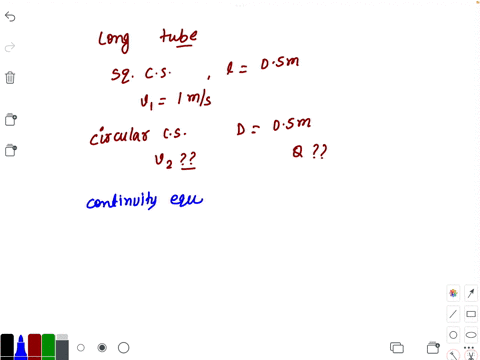 Long tube
sq. c.s. , l = 0.5m
v₁ = 1 m/s
circular c.s. D = 0.5m
v₂ ?? Q ??
continuity equ